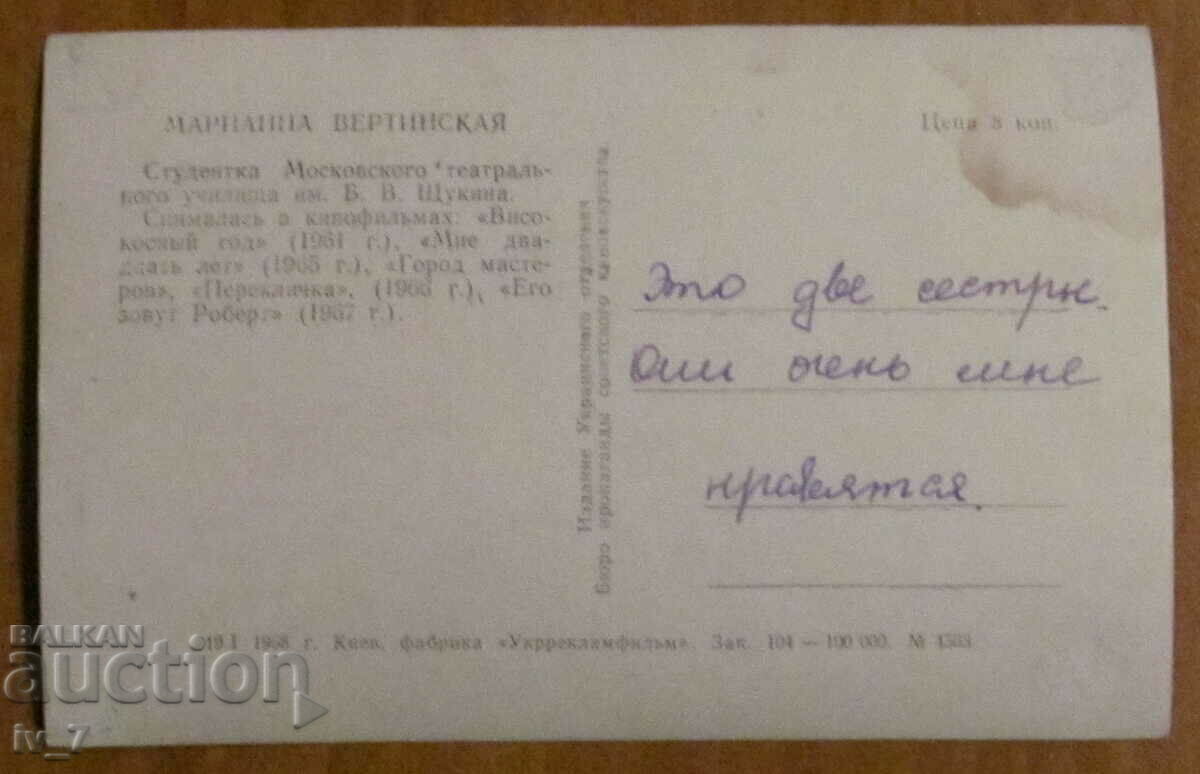 МАРИАННА ВЕРТИНСКАЯ
Студентка Московского театраль-
ного училища им. Б. В. Щукина.
Снималась в кинофильмах: «Висо-
косный год» (1961 г.), «Мне два-
дцать лет» (1965 г.), «Город масте-
ров», «Перекличка», (1965 г.), «Его
зовут Роберт» (1967 г.).
Издание Украинского отделения
Бюро пропаганды советского киноискусства.
Цена 8 коп.
Это две сестры.
Они очень мне
нравятся.
1968 г. Киев, фабрика «Укррекламфильм». Зак. 104 — 100 000. №
BALKAN
auction
iv_7